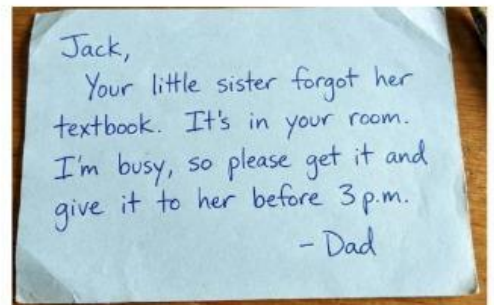 Jack,
Your little sister forgot her
textbook. It's in your room.
I'm busy, so please get it and
give it to her before 3 p.m.
- Dad